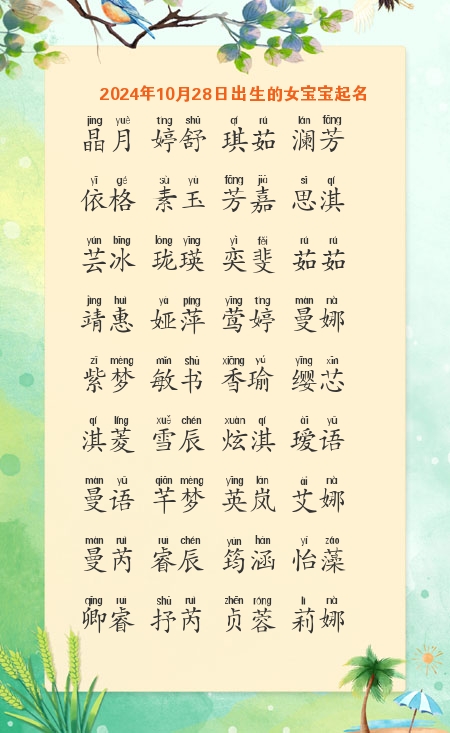 2024年10月28日出生的女宝宝起名
jīng yuè tíng shū qí rú lán fāng
晶月 婷舒 琪茹 澜芳
yī gé sù yù fāng jiā sī qí
依格 素玉 芳嘉 思淇
yún bīng lóng yīng yì fěi rú rú
芸冰 珑瑛 奕斐 茹茹
jìng huì yà píng yīng tíng màn nà
靖惠 娅萍 莺婷 曼娜
zǐ mèng mǐn shū xiāng yú yīng xīn
紫梦 敏书 香瑜 缨芯
qí líng xuě chén xuàn qí ài yǔ
淇菱 雪辰 炫淇 瑷语
màn yǔ qiān mèng yīng lán ài nà
曼语 芊梦 英岚 艾娜
màn ruì ruì chén yún hán yí zǎo
曼芮 睿辰 筠涵 怡藻
qīng ruì shū ruì zhēn róng lì nà
卿睿 抒芮 贞蓉 莉娜